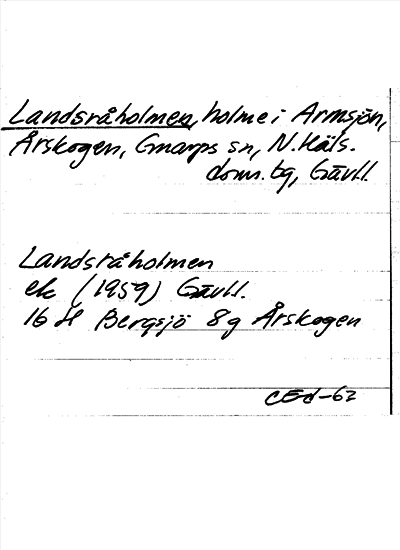 Landsråholmen, holme i Armsjön,
Årskogen, Gnarps sn, N. Häls.
doms. tg, Gävll.
Landsråholmen
ek (1959) Gävll.
16 H Bergsjö 8g Årskogen
CEd-62